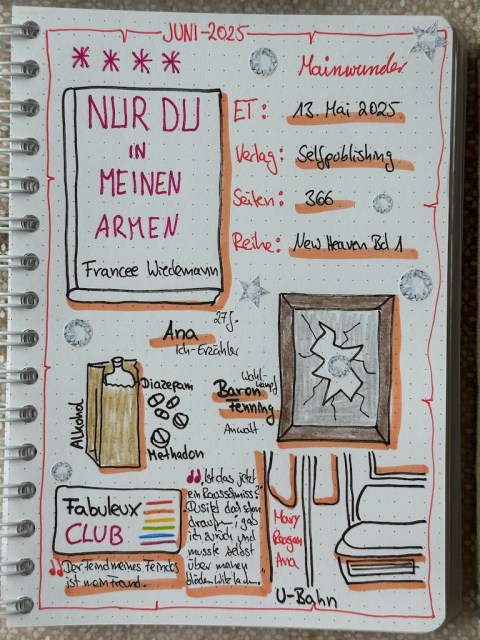 JUNI-2025
* * * *
Mainwunder
NUR DU
IN
MEINEN
ARMEN
Francee Wiedemann
ET: 13. Mai 2025
Verlag: Selfpublishing
Seiten: 366
Reihe: New Heaven Bd 1
27J.
Ana
Ich-Erzähler
Wahl-
kampf
Baron
Fenning
Anwalt
Alkohol
Diazepam
Methadon
Fabuleux
CLUB
"Der Feind meines Feindes
ist mein Freund.
"Ist das jetzt
ein Rausschmiss?"
"Du sitzt doch schon
draußen", gab
ich zurück und
musste selbst
über meinen
blöden Witz lachen."
Mary
Reagan
Ana
U-Bahn